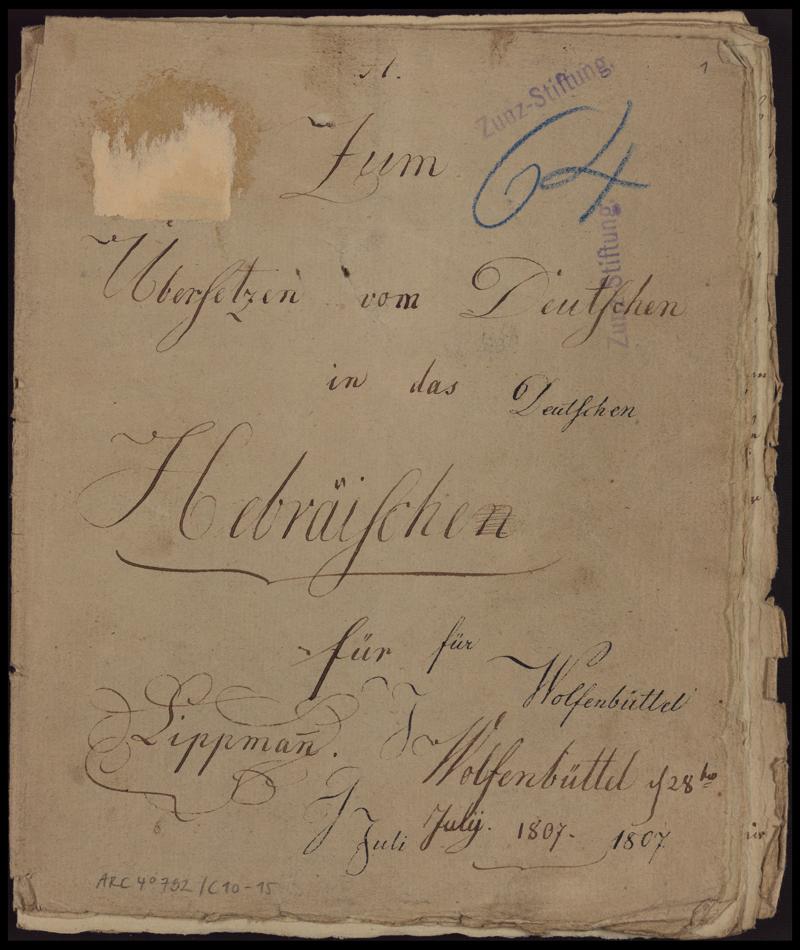 A.
1
Zunz-Stiftung.
Zum
64
Zunz-Stiftung.
Übersetzen vom Deutschen
in das Deutschen
Hebräischen
für für
Wolfenbüttel
Lippman̄. J
Wolfenbüttel d 28ten
July. 1807. 1807
Juli
ARC 4° 792/C10-15